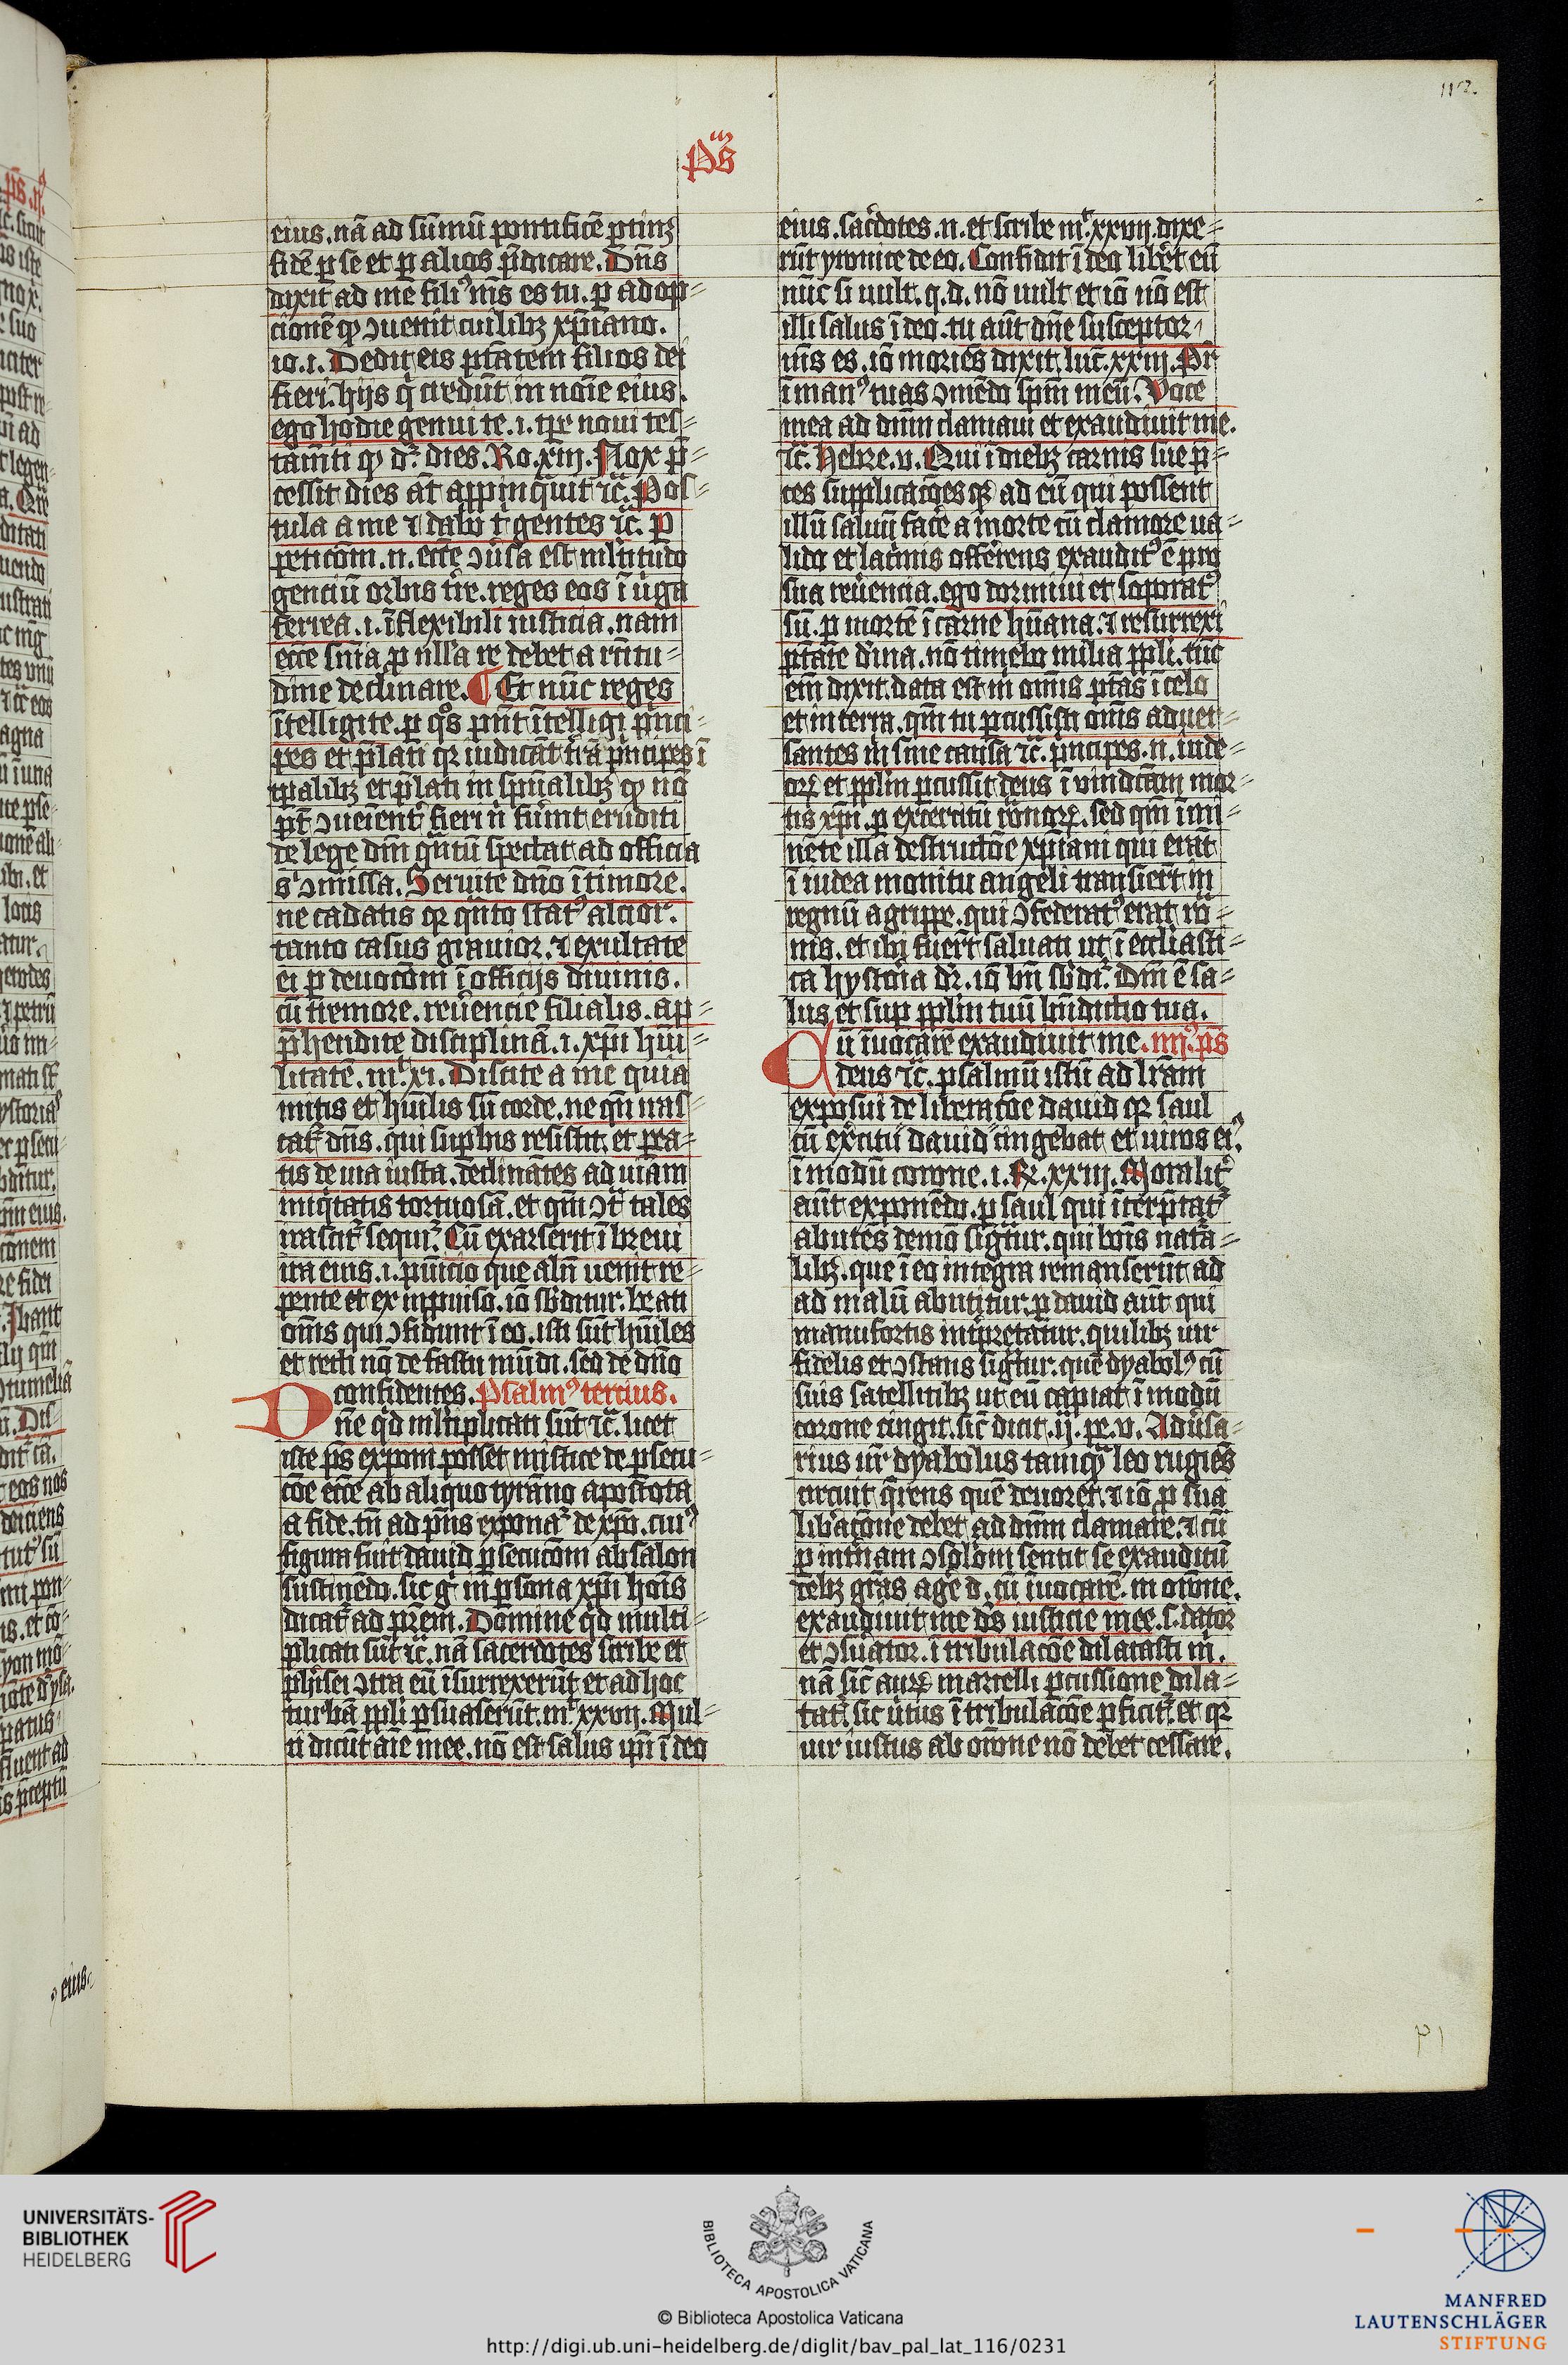 112
Ps iij
eius. nā ad sūmū pontificē ptinz
fidē p se et p alios p̄dicare. Dn̄s
dixit ad me fili⁹ m̄s es tu. p adop⸗
cionē qꝫ ↄuenit cuilibꝫ xp̄iano.
io.i. Dedit eis ptātem filios dei
fieri. hijs q̄ credūt in noīe eius.
ego hodie genui te .i. tpr̄e noui tes⸗
tam̄ti qꝫ dr̄ dies. Ro.xiij. Nox p̄⸗
cessit dies āt appinq̄uit ⁊c̄. Pos⸗
tula a me ⁊ dabo t̄ gentes ⁊c̄. p
peticōm .n. ecc̄e ↄūsa est ml̄titudo
genciū orbis tr̄e. reges eos ī ūga
ferrea .i. īflexibili iusticia. nam
ecc̄e sn̄ia p nll̄a re debet a rc̄itu⸗
dine declinare. Et nūc reges
ītelligite. p qͦs pn̄t ītelligi p̄nci⸗
pes et p̄lati qꝛ iudicāt tr̄ā p̄ncipes ī
tp̄alibꝫ et p̄lati in sp̄ualibꝫ qꝫ nō
pt̄ ↄueīent̄ fieri n̄ fūint eruditi
de lege dn̄i qn̄tū spectat ad officia
s ↄmissa. Seruite dn̄o ī timore.
ne cadatis qꝛ qn̄to stat⁹ alcior.
tanto casus grauior. ⁊ exultate
ei p deuocōm ī officijs diuinis.
cū tremore. reūencie filialis. ap⸗
p̄hendite disciplinā .i. xp̄i hūi⸗
litatē. mt.xi. Discite a me quia
mitis et hūilis sū corde. ne qn̄ iras⸗
cat̄ dn̄s. qui supbis resistit. et pea⸗
tis de uia iusta. declinātes ad uiam
iniq̄tatis tortuosā. et qm̄ ↄt̄ tales
irascit̄ sequit̄. Cū exarserit ī breui
ira eius .i. pūicio que alī uenit re⸗
pente et ex inpuiso. iō sb̄ditur. beati
om̄s qui ↄfidunt ī eo. isti sūt hūiles
et recti nō de fastu mūdi. sed de dn̄o
confidentes. Psalm⁹ tercius.
Dn̄e qͥd ml̄tiplicati sūt ⁊c̄. licet
iste ps̄ exponi posset mistice de psecu⸗
cōe ecc̄e ab aliquo tyrāno apostota
a fide. tn̄ ad pn̄s exponat̄ de xp̄o. cui⁹
figura fuit dauid psecucōm absalon
sustinēdo. sic gͦ in psona xp̄i hoīs
dicat̄ ad pr̄em. Domine qͥd multi⸗
plicati sūt ⁊c̄. nā sacerdotes scribe et
ph̄isei ↄtra eū īsurrexerūt et ad hoc
turbā ppli psuaserūt. mt.xxvij. Mul⸗
ti dicūt aīe mee. nō est salus ip̄i ī deo
eius. sac̄dotes .n. et scribe mt.xxvij. dixe⸗
rūt yronice de eo. Confidit ī deo lib̄et eū
nūc si uult. q.d. nō uult et iō nō est
illi salus ī deo. tu aūt dn̄e susceptor
m̄s es. iō moriēs dixit luc̄.xxiij. Pr̄
ī man⁹ tuas ↄmēdo spm̄ meū. Uoce
mea ad dn̄m clamaui et exaudiuit me.
⁊c̄. Hebre.v. Qui ī diebꝫ carnis sue p̄⸗
ces supplicacōes qꝫ ad eū qui possent
illū saluū facē a morte cū clamore ua⸗
lido et lac̄mis offerens exaudit⁹ ē pro
sua reūencia. ego dormiui et soporat⁹
sū. p mortē ī carne hūana. ⁊ resurrexi
ptāte d̄ina. nō timebo milia ppli. tūc
em̄ dixit. data est m̄ om̄is ptās ī celo
et in terra. qm̄ tu pcussisti om̄s aduer⸗
santes m̄ sine causa ⁊c̄. p̄ncipes .n. iude⸗
oꝝ et pplm̄ pcussit deus ī vindictam mor⸗
tis xp̄i. p exercitū romanoꝝ. sed qm̄ īmi⸗
nēte illa destructōe xp̄iani qui erāt
ī iudea monitu angeli transierūt in
regnū agrippe. qui ↄfederat⁹ erat ro⸗
nis. et ibi fuer̄t saluati ut ī ecclīasti⸗
ca hystoria dr̄. iō bn̄ sb̄dit̄. Dn̄i ē sa⸗
lus et sup pplm̄ tuū bn̄dictio tua.
Cū īuocarē exaudiuit me. iiij⁹. ps̄
deus ⁊c̄. psalmū istū ad lr̄am
exposui de liberacōe dauid qꝛ saul
cū ex̄citu dauid cingebat et uiros ei⁹
ī modū corone .i. R.xxiij. Moralit̄
aūt exponēdo. p saul qui īterp̄tat̄
abutēs demō sigt̄ur. qui boīs nat̄a⸗
libꝫ. que ī eo integra remanserūt ad
ad malū abutitur. p dauid aūt qui
manufortis int̄pretatur. quilibꝫ uir
fidelis et ↄstans sigt̄ur. quē dyabol⁹ cū
suis satellitibꝫ ut eū capiat ī modū
corone cingit. sic̄ dicit .ij. pe.v. Aduīsa⸗
rius ur̄ dyabolus tamqͣ leo rugiēs
circuit q̄rens quē deuoret. ⁊ iō p sua
lib̄acōne debet ad dn̄m clamare. ⁊ cū
p int̄nam ↄsolōm sentit se exauditū
debꝫ grās agē d. cū īuocarē. in orōne.
exaudiuit me ds̄ iusticie mee. s. dator
et ↄs̄uator. ī tribulacōe dilatasti m̄.
nā sic̄ aurꝫ martelli pcussione dila⸗
tat̄. sic ūtus ī tribulacōe pficit̄. et qꝛ
uir iustus ab orōne nō debet cessare.
eius
UNIVERSITÄTS-
BIBLIOTHEK
HEIDELBERG
BIBLIOTECA APOSTOLICA VATICANA
© Biblioteca Apostolica Vaticana
http://digi.ub.uni-heidelberg.de/diglit/bav_pal_lat_116/0231
MANFRED
LAUTENSCHLÄGER
STIFTUNG